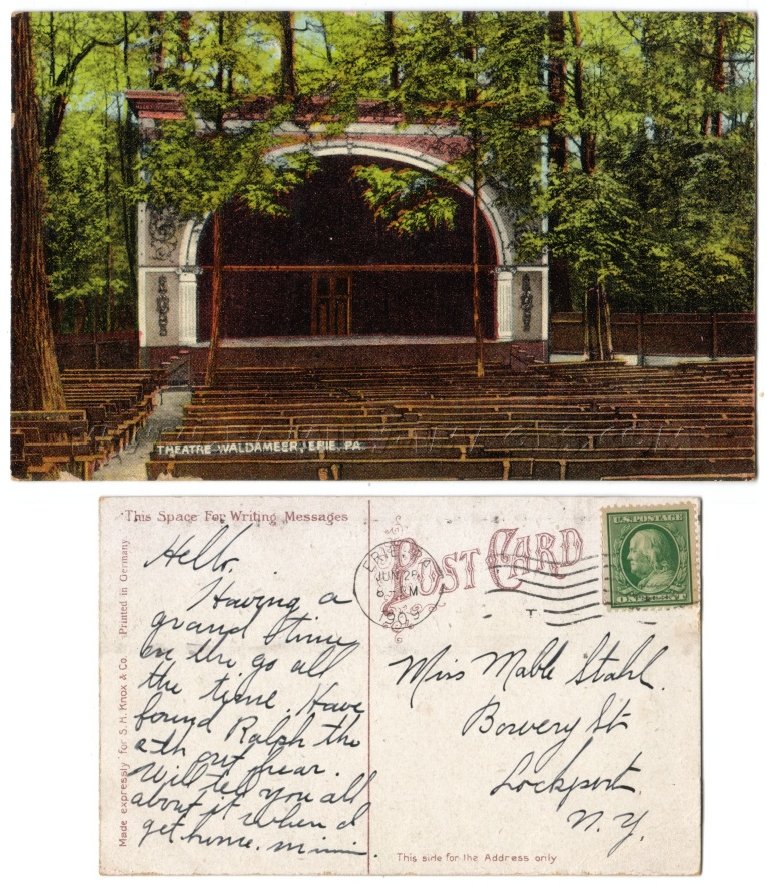 THEATRE WALDAMEER, ERIE, PA.
This Space For Writing Messages
POST CARD
ERIE, PA.
JUN 28
1909
U.S. POSTAGE
ONE CENT
Printed in Germany
Made expressly for S. H. Knox & Co.
Hello.
Having a
grand time
on the go all
the time. Have
found Ralph the
8th out here.
Will tell you all
about it when I
get home. Mimi.
Miss Mable Stahl.
Bowery St
Lockport.
N. Y.
This side for the Address only